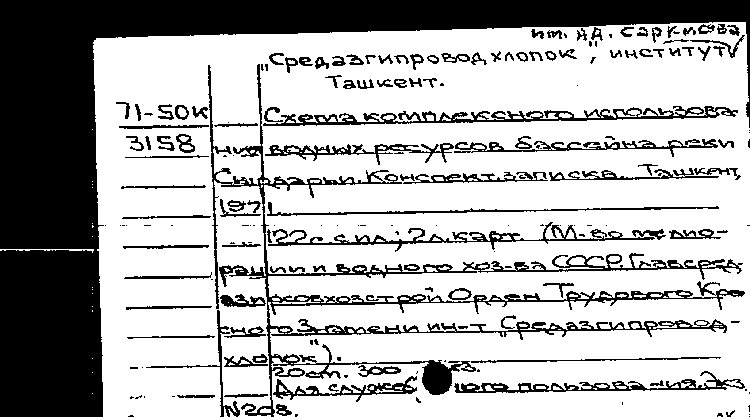 им. А.А. Саркисова
„Средазгипроводхлопок", институт
Ташкент.
71-50к Схема комплексного использова-
3158 ния водных ресурсов бассейна реки
Сырдарьи. Конспект.записка. Ташкент,
1971.
122 с. с ил.; 2 л. карт. (М-во мелио-
рации и водного хоз-ва СССР. Главсред
азирсовхозстрой Орден Трудового Кра
сного Знамени ин-т „Средазгипровод-
хлопок").
20 cm. 300 экз.
Для служеб ного пользования. Экз.
N208.